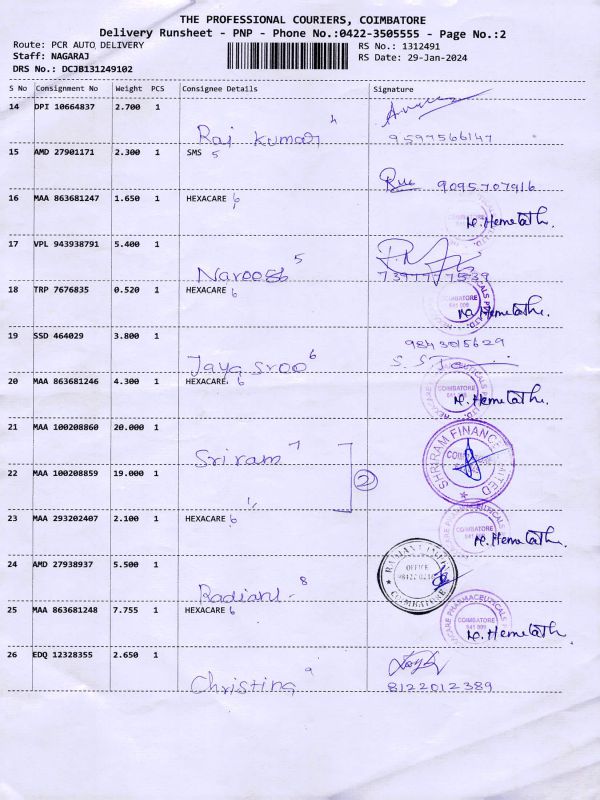 THE PROFESSIONAL COURIERS, COIMBATORE
Delivery Runsheet - PNP - Phone No.:0422-3505555 - Page No.:2
Route: PCR AUTO DELIVERY
RS No.: 1312491
Staff: NAGARAJ
RS Date: 29-Jan-2024
DRS No.: DCJB131249102
S No Consignment No Weight PCS Consignee Details Signature
14 DPI 10664837 2.700 1
Raj Kumar 4
9597566147
15 AMD 27901171 2.300 1 SMS 5
9095707916
16 MAA 863681247 1.650 1 HEXACARE 6
M. Hemelath.
17 VPL 943938791 5.400 1
5
18 TRP 7676835 0.520 1 HEXACARE 6
COIMBATORE
M. Hemelath.
19 SSD 464029 3.800 1
9843015629
Jaya Sroo 6
20 MAA 863681246 4.300 1 HEXACARE 6
COIMBATORE
M. Hemelath.
21 MAA 100208860 20.000 1
Sriram 7
SHRIRAM FINANCE LIMITED
22 MAA 100208859 19.000 1
2
23 MAA 293202407 2.100 1 HEXACARE 6
COIMBATORE
M. Hemelath.
24 AMD 27938937 5.500 1
OFFICE
COIMBATORE
Radiant 8
25 MAA 863681248 7.755 1 HEXACARE 6
HEXACARE PHARMACEUTICALS
COIMBATORE
641 009
M. Hemelath
26 EDQ 12328355 2.650 1
Christina 9
8122012389